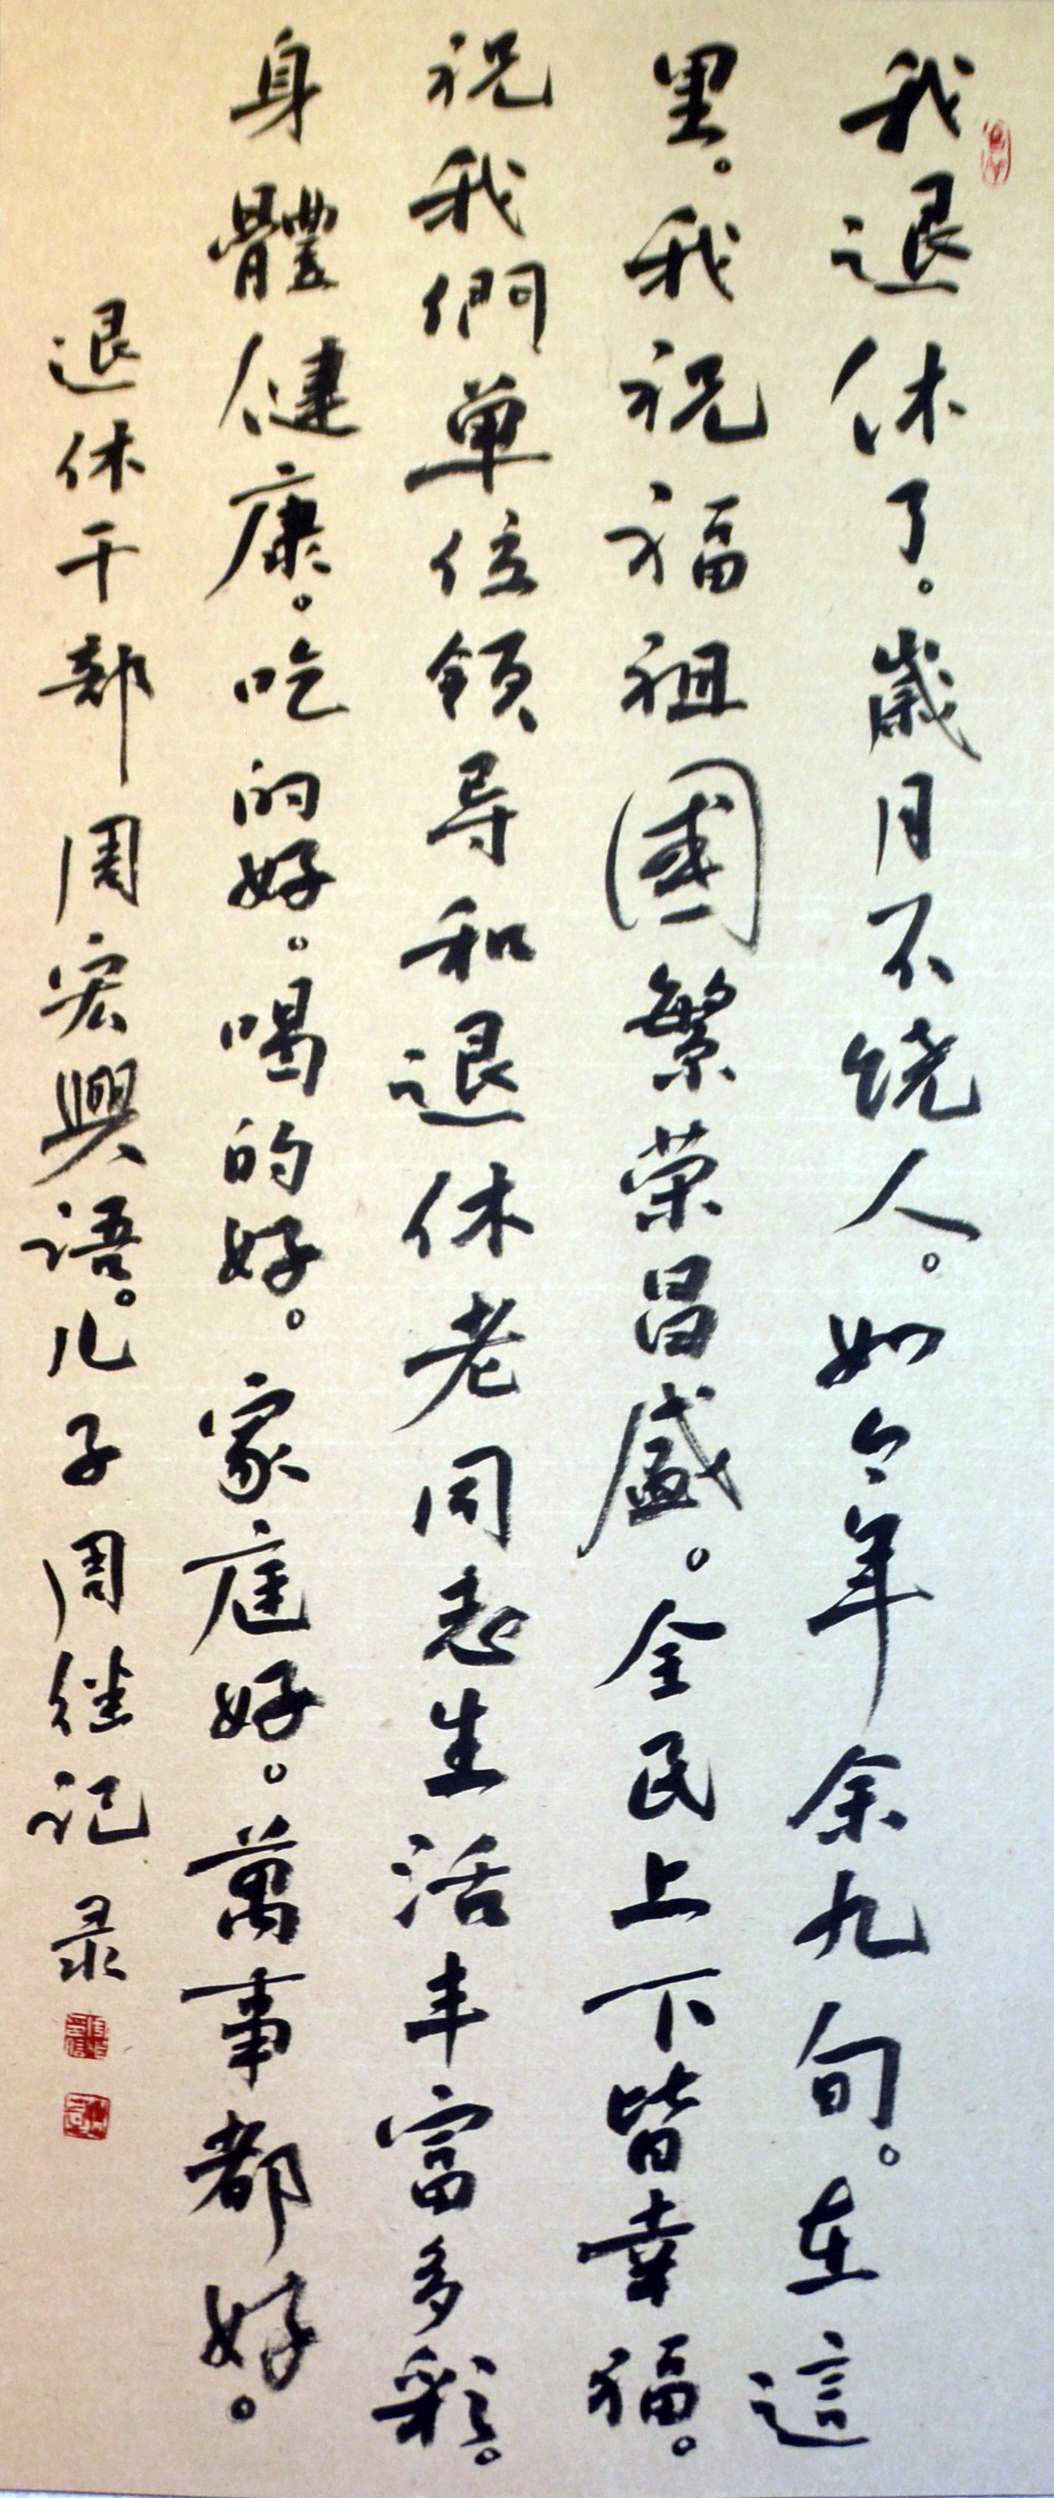 我退休了。歳月不饶人。如今年余九旬。在這
里。我祝福祖國繁荣昌盛。全民上下皆幸福。
祝我們单位领导和退休老同志生活丰富多彩。
身體健康。吃的好。喝的好。家庭好。萬事都好。
退休干部周宏興语。儿子周继记录